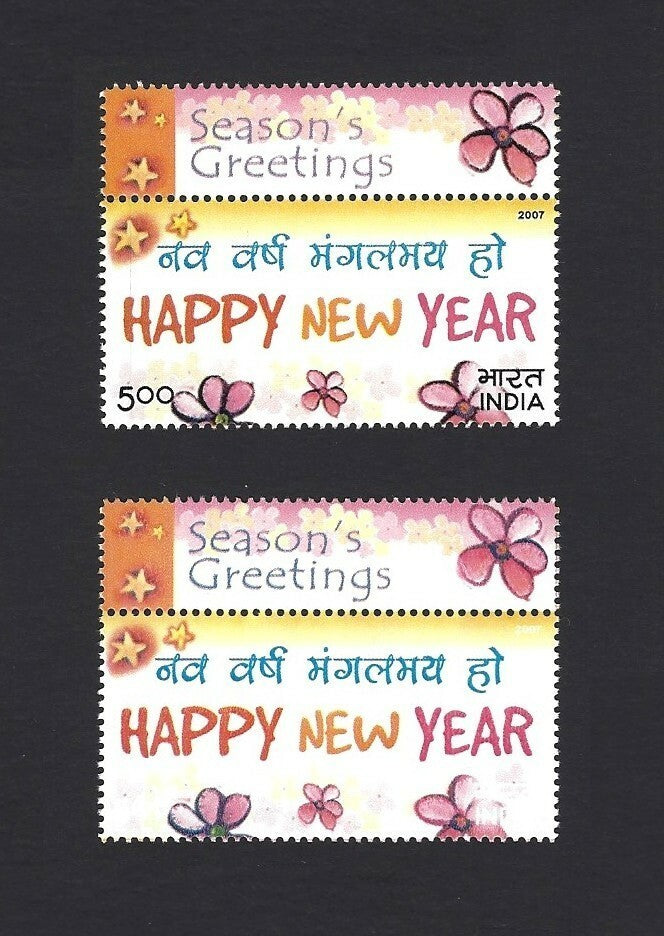 Season's
Greetings
2007
नव वर्ष मंगलमय हो
HAPPY NEW YEAR
500
भारत
INDIA
Season's
Greetings
2007
नव वर्ष मंगलमय हो
HAPPY NEW YEAR